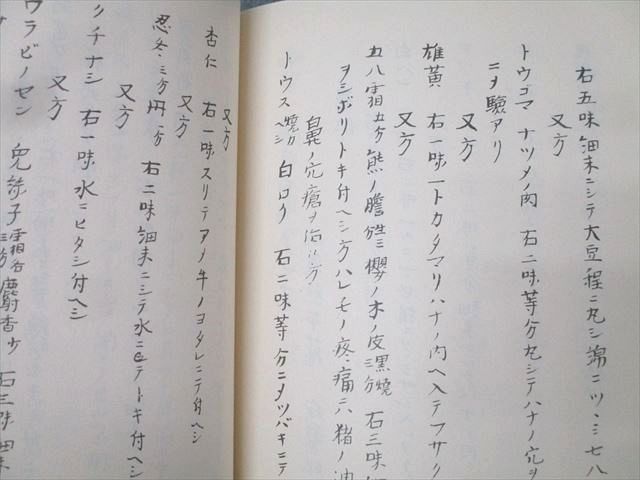 右五味細末ニシテ大豆程ニ丸シ綿ニツヽミ七八
又方
トウゴマ ナツメノ肉 右二味等分丸シテハナノ穴ヲ
ニヲ驗アリ
又方
雄黄 右一味一トカタマリハナノ内ヘ入テフサク
又方
五八霜五分 熊ノ膽 三 櫻ノ木ノ皮黒焼 右三味細
ヲシボリトキ付ヘシ 方ハレモノ疼痛ニハ猪ノ油
鼻ノ穴瘡ヲ治ル方
トウス 焼 ヘシ 白ロウ 右二味等分ニメツバキニテ
又方
杏仁 右一味スリテアメ牛ノヨタレニテ付ヘシ
又方
忍冬 三分 丹 一分 右二味細末ニシテ水ニテトキ付ヘシ
又方
クチナシ 右一味水ニヒタシ付ヘシ
又方
ワラビノセン 兎絲子霜 各三分 麝香少 右三味細末